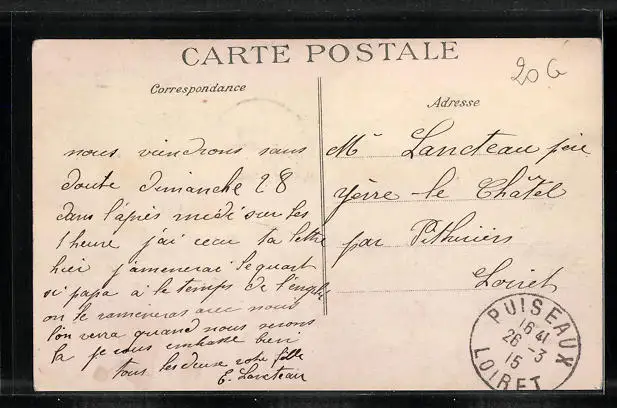 CARTE POSTALE
20 G
Correspondance
Adresse
nous viendrons sans
doute dimanche 28
dans l'après midi sur les
1 heure j'ai recu ta lettre
hier j'amenerai le quart
si papa a le temps de l'englé
on le ramenera avec nous
l'on verra quand nous serons
la je vous embrasse bien
tous les deux votre fille
E. Lancteau
Mr Lancteau père
Yèvre-le Châtel
par Pithiviers
Loiret
PUISEAUX
16 41
26 - 3
15
LOIRET